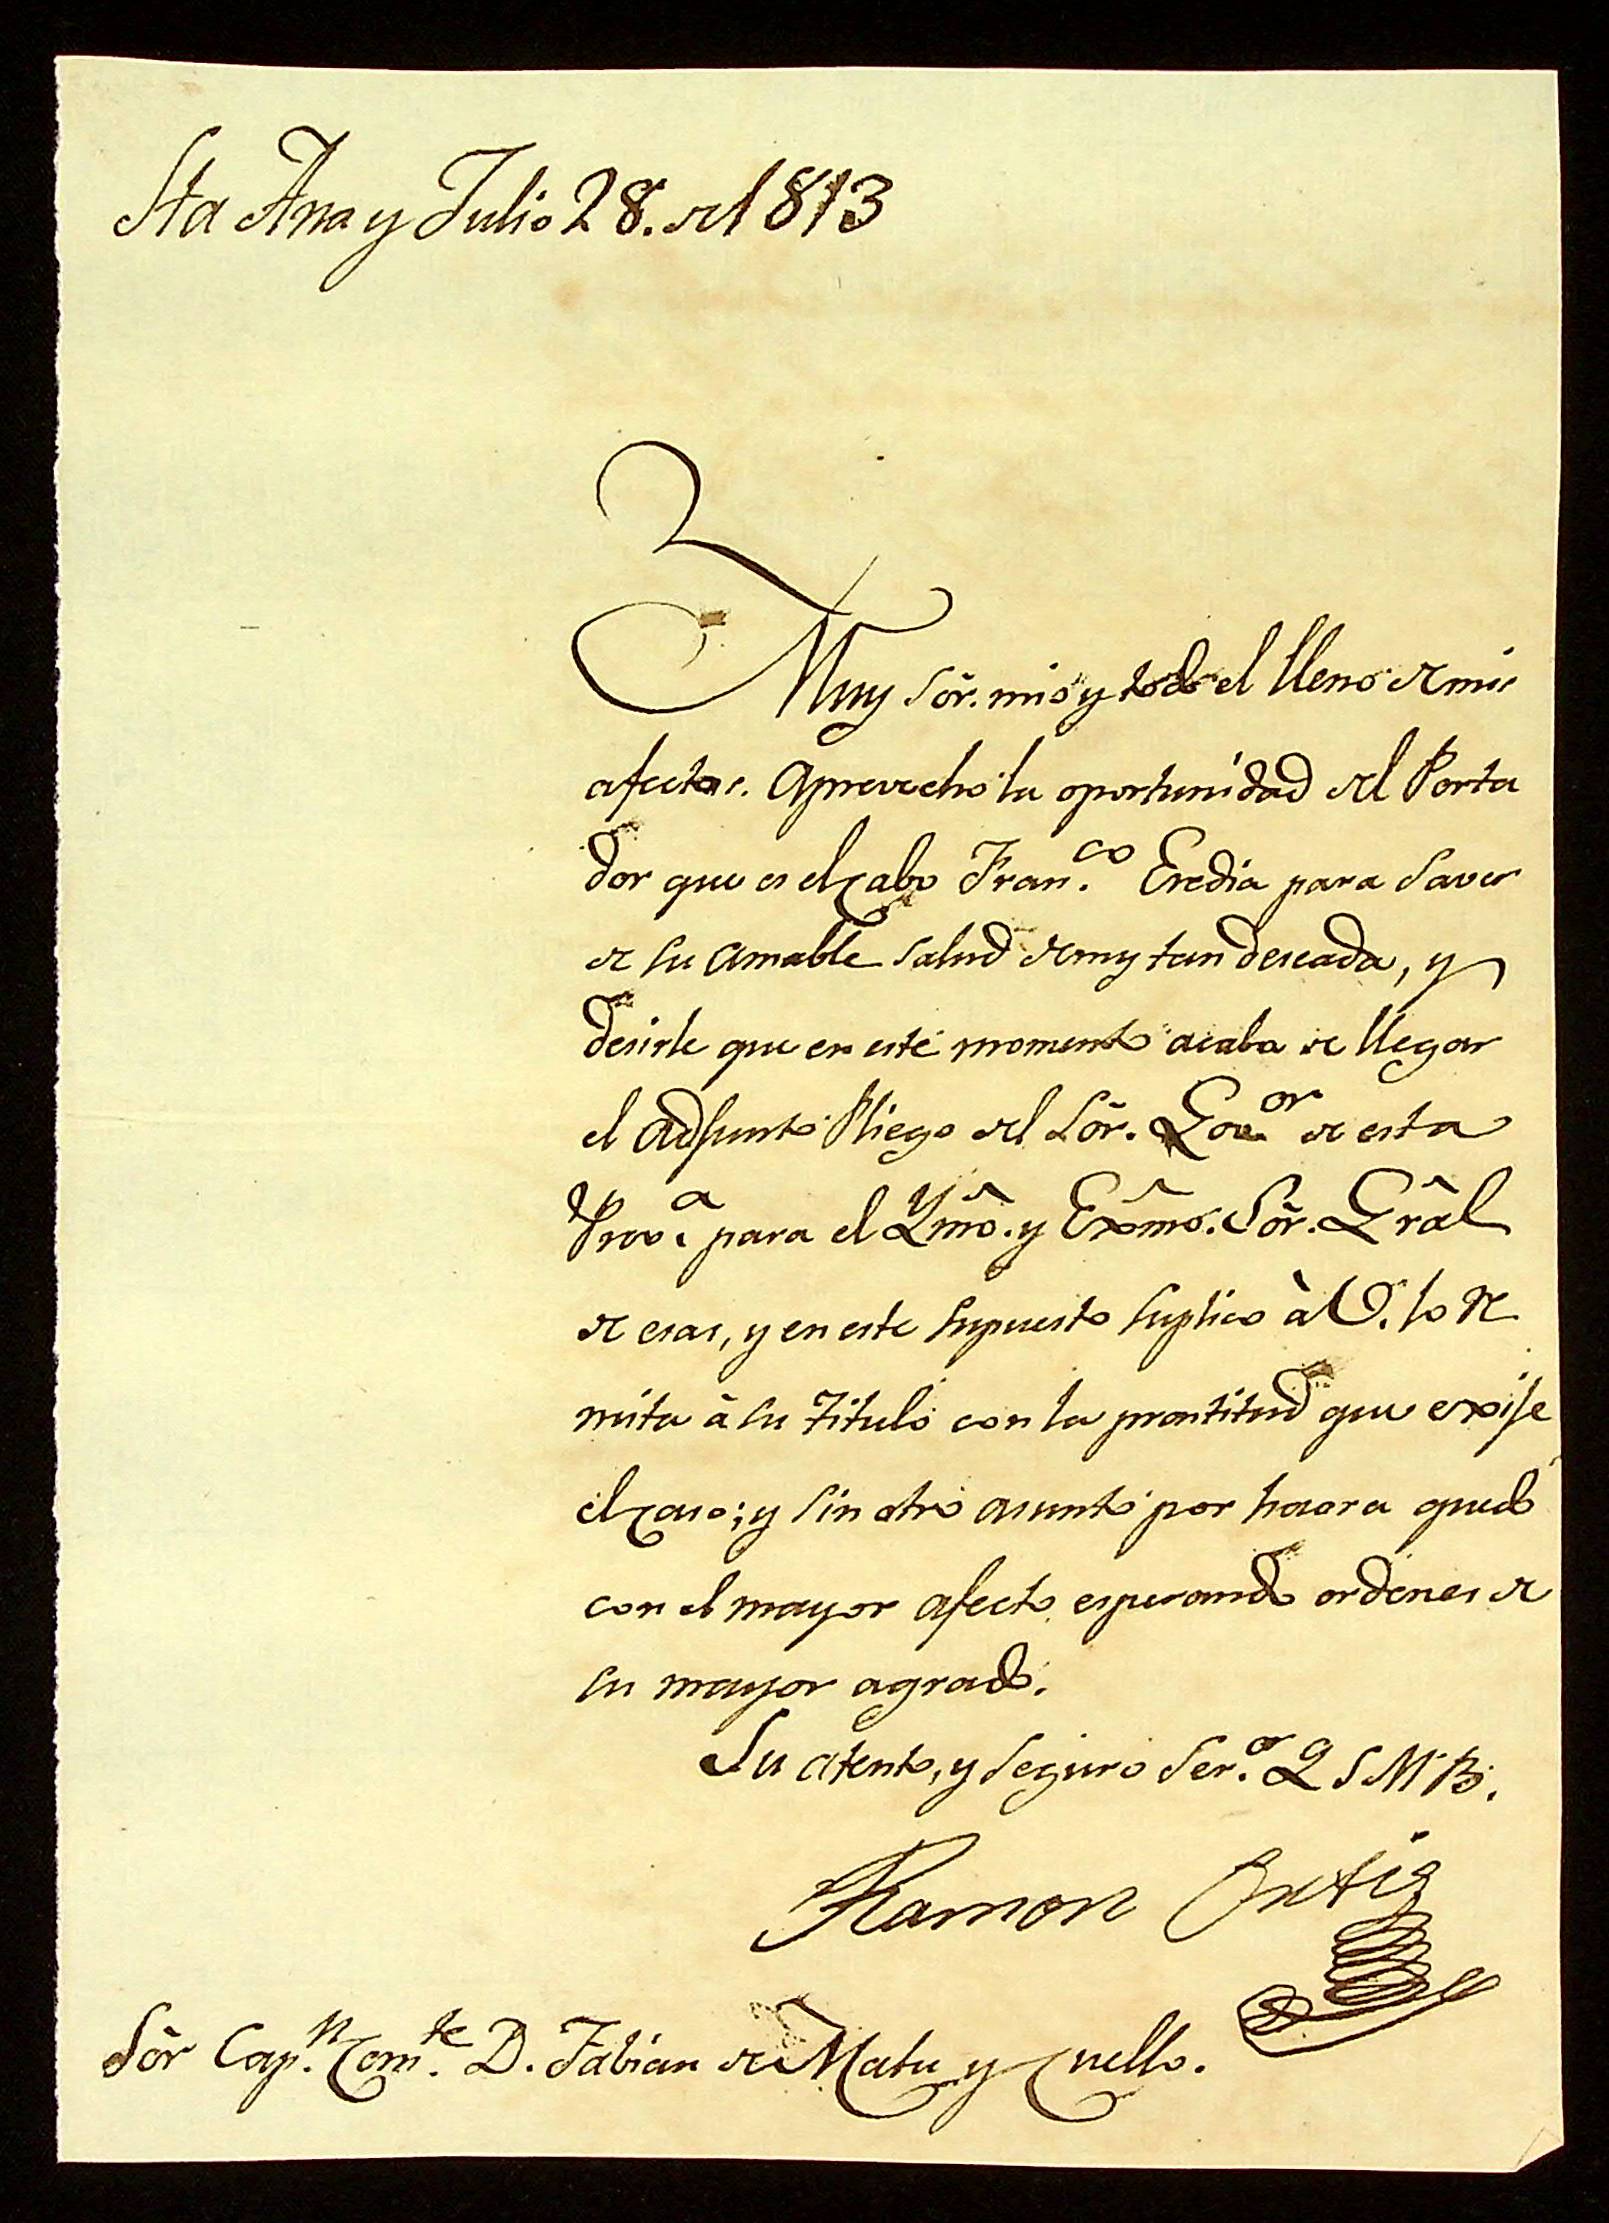 Sta Ana y Julio 28. del 1813
Muy Sõr. mio y todo el lleno de mis
afectos. Aprovecho la oportunidad del Porta
dor que es el cabo Fran.co Eredia para saver
de su amable salud de my tan deseada, y
desirle que en este momento acaba de llegar
el adjunto Pliego del Sõr. Gov.or de esta
Prov.a para el Ymõ. y Exõmo. Sõr. Grãl
de esas, y en este supuesto suplico à V. lo re
mita à su titulo con la prontitud que exije
el caso; y sin otro asunto por haora quedo
con el mayor afecto esperando ordenes de
su mayor agrado.
Su atento, y seguro Ser.or Q S M B.
Ramon Ortis
Sõr Cap.n Com.te D. Fabian de Mata y Cuello.